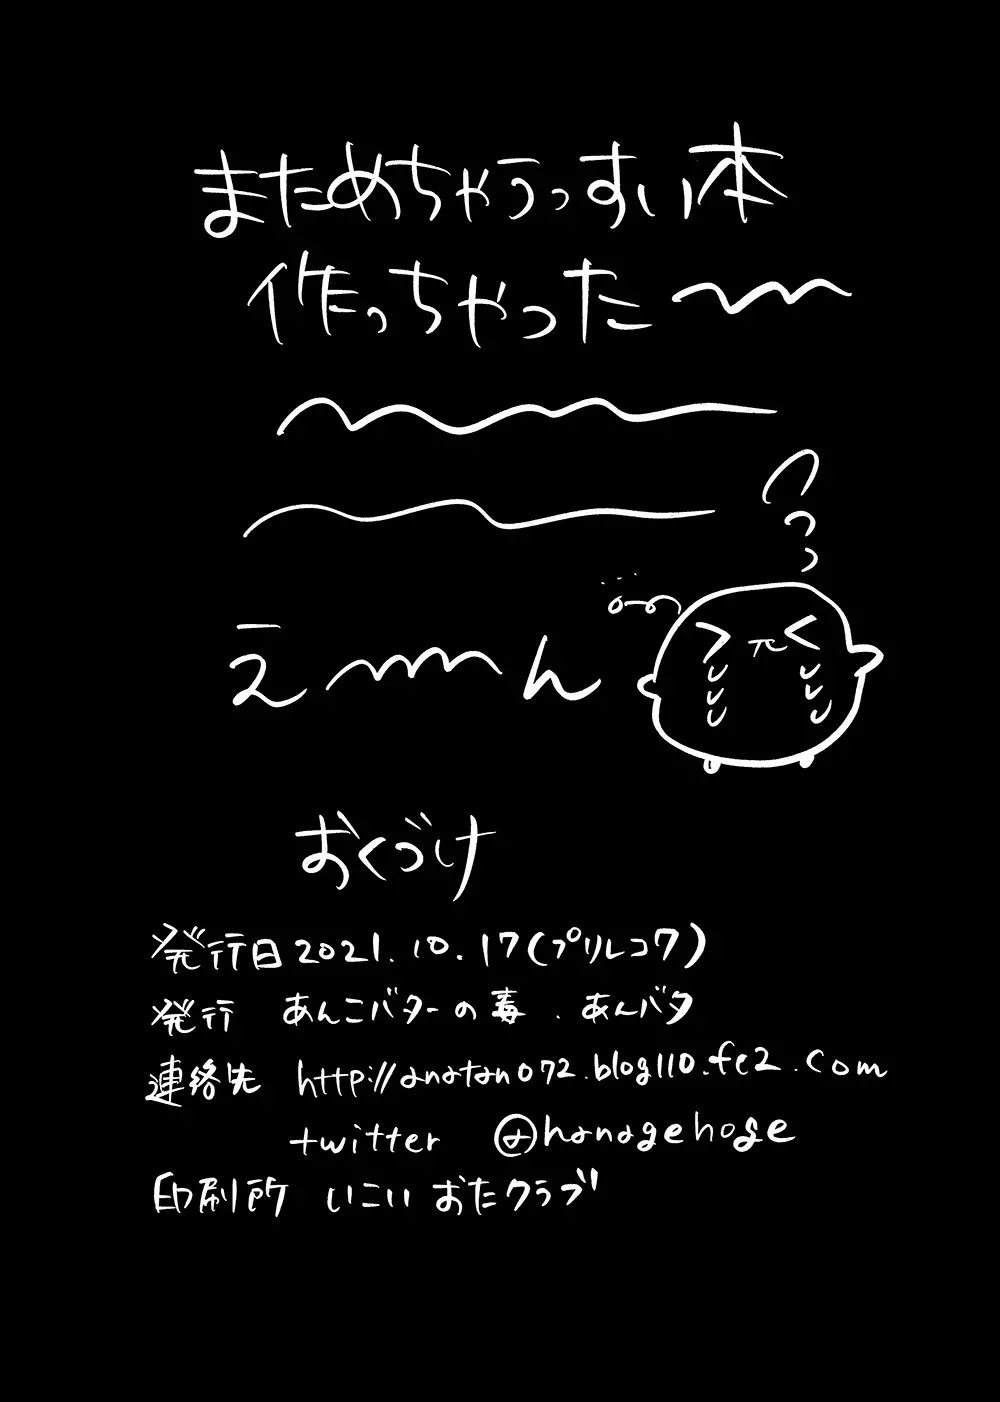 まためちゃうっすい本
作っちゃった〜
え〜ん
おくづけ
発行日 2021.10.17(プリレコ7)
発行 あんこバターの毒 . あんバタ
連絡先 http://anatan072.blog110.fc2.com
twitter @hanagehoge
印刷所 いこい おたクラブ